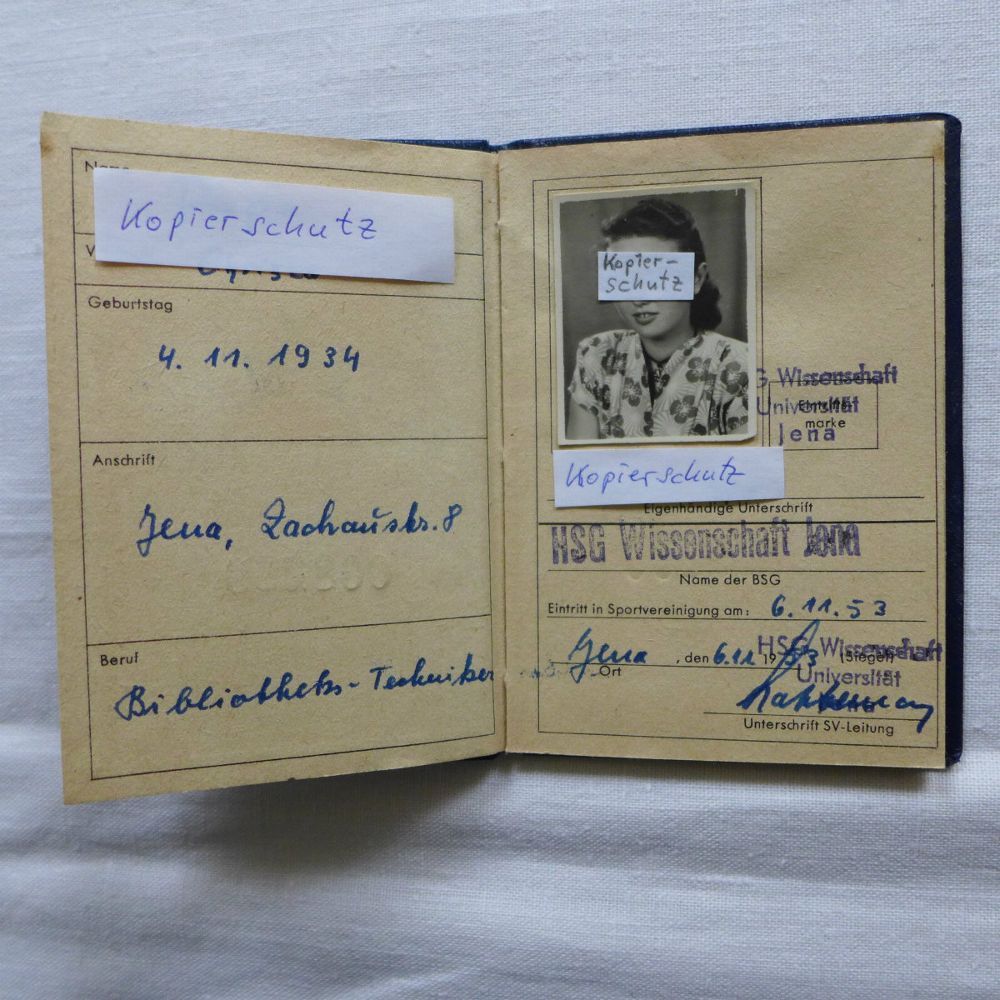 Name
Kopierschutz
Geburtstag
4. 11. 1934
Anschrift
Jena, 8
Beruf
Bibliotheks-Techniker
Kopier-
schutz
G Wissenschaft
Universität
Jena
marke
Kopierschutz
Eigenhändige Unterschrift
HSG Wissenschaft Jena
Name der BSG
Eintritt in Sportvereinigung am: 6.11.53
Jena, den 6.11 1953 (Siegel)
Ort
HSG Wissenschaft
Universität
Unterschrift SV-Leitung